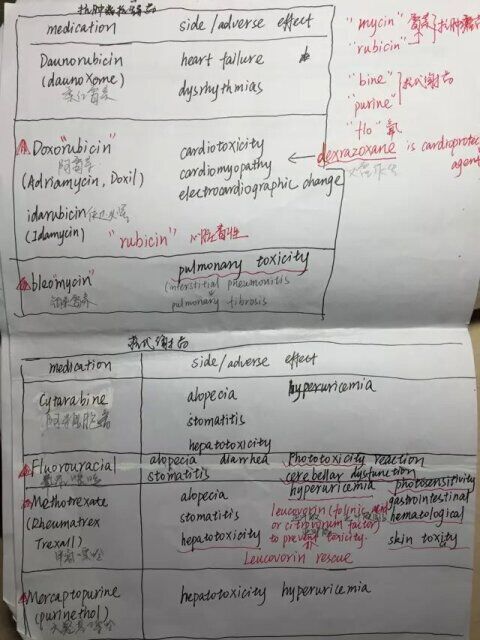 抗肿瘤抗生素
medication side/adverse effect
Daunorubicin heart failure
(daunoxome) dysrhythmias
柔红霉素
"mycin" 霉素 抗肿瘤
"rubicin"
"bine" 抗代谢药
"purine"
"flo" 氟
Doxo"rubicin" cardiotoxicity
阿霉素 cardiomyopathy
(Adriamycin, Doxil) electrocardiographic change
dexrazoxane is cardioprotec
agent
idarubicin
(Idamycin)
"rubicin" 心脏毒性
bleo"mycin" pulmonary toxicity
(interstitial pneumonitis
pulmonary fibrosis
抗代谢药
medication side/adverse effect
Cytarabine alopecia hyperuricemia
阿糖胞苷 stomatitis
hepatotoxicity
Fluorouracial alopecia diarrhea Phototoxicity reaction
stomatitis cerebellar dysfunction
Methotrexate alopecia hyperuricemia photosensitivity
(Rheumatrex stomatitis leucovorin (folinic acid gastrointestinal
Trexall) or citrovorum factor) hematological
hepatotoxicity to prevent toxicity. skin toxity
甲氨喋呤
Leucovorin rescue
Mercaptopurine hepatotoxicity hyperuricemia
(purinethol)